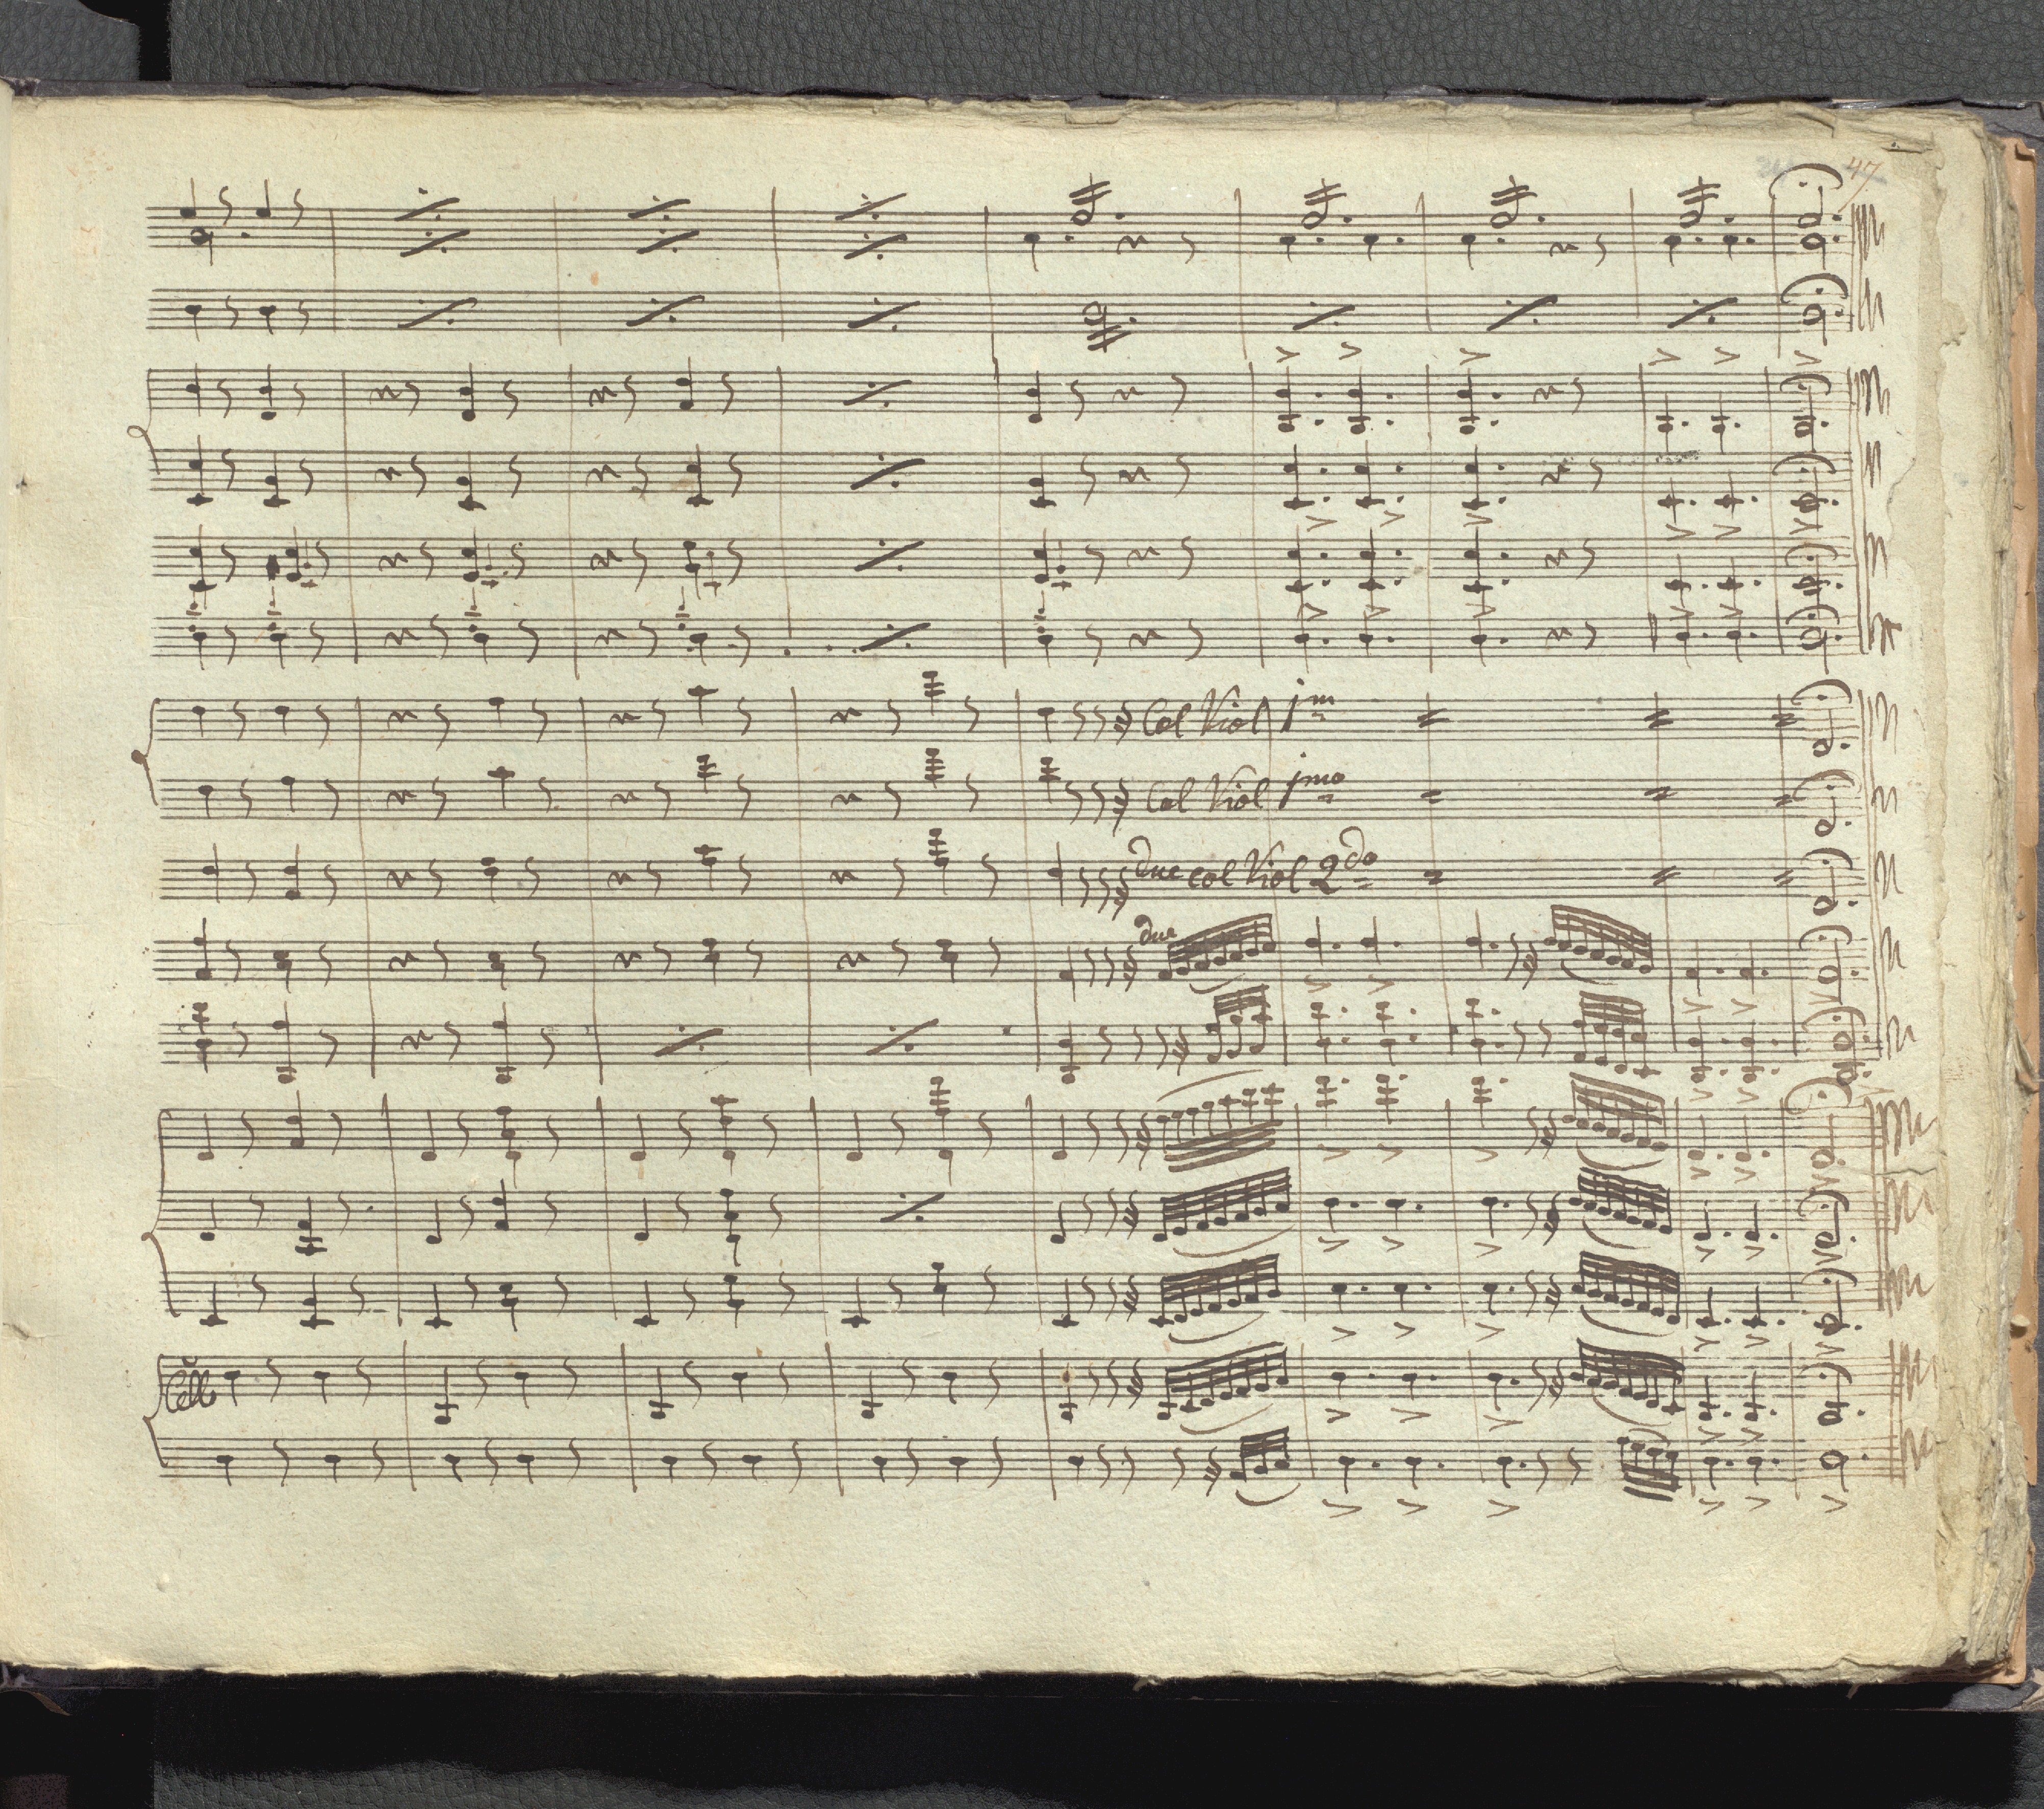 47
Col Viol 1m
Col Viol 1mo
due col Viol 2do
due
Cello